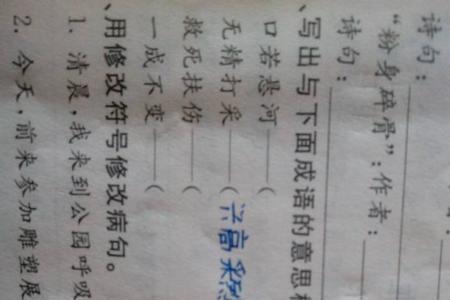 诗句：
“粉身碎骨”：作者：
诗句：
、写出与下面成语的意思
口若悬河——（
无精打采——（兴高采烈
救死扶伤——（
一成不变——（
、用修改符号修改病句。
1. 清晨，我来到公园呼吸
2. 今天，前来参加雕塑展